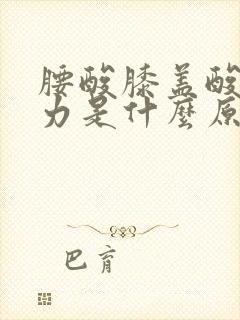 腰酸膝盖酸
力是什麼原
巴育